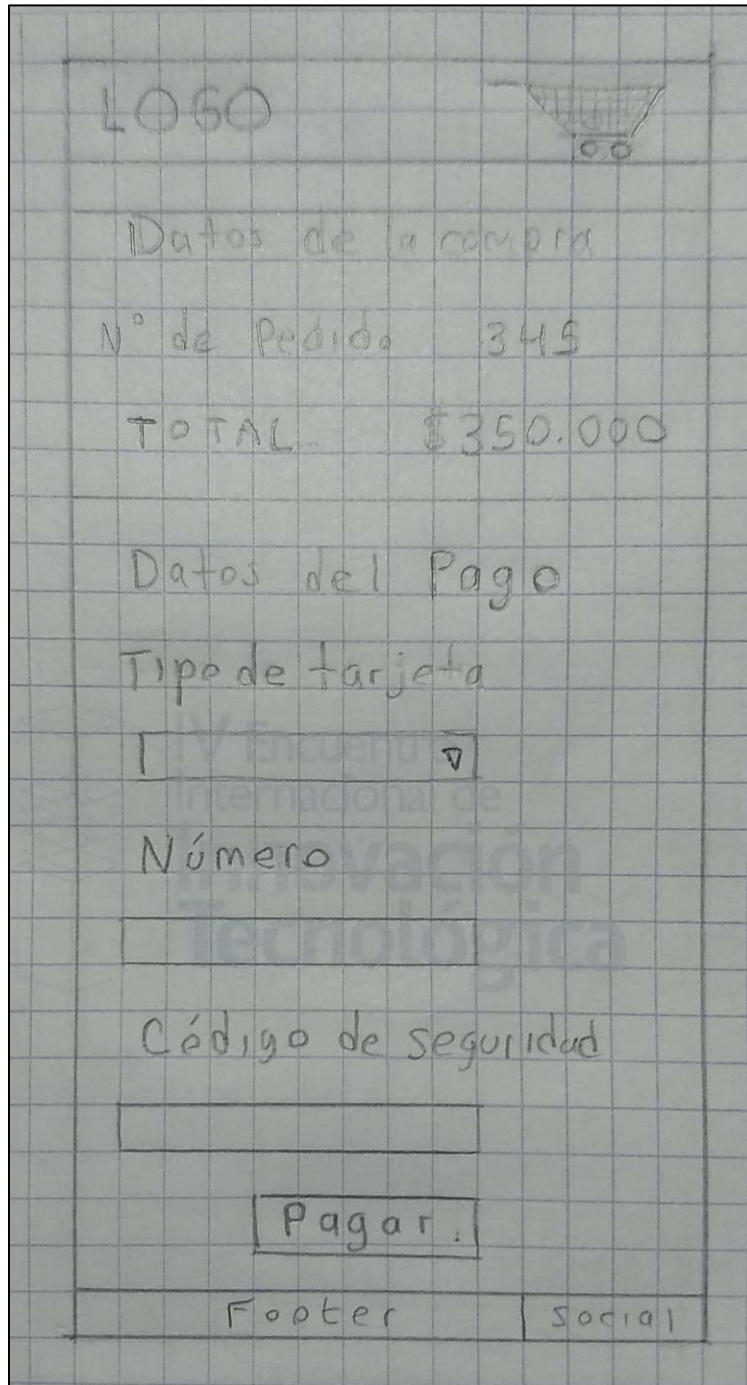 LOGO
Datos de la compra
N° de Pedido 345
TOTAL $350.000
Datos del Pago
Tipo de tarjeta
IV Encuentro
Internacional de
Innovación
Tecnológica
Número
Código de seguridad
Pagar.
Footer social